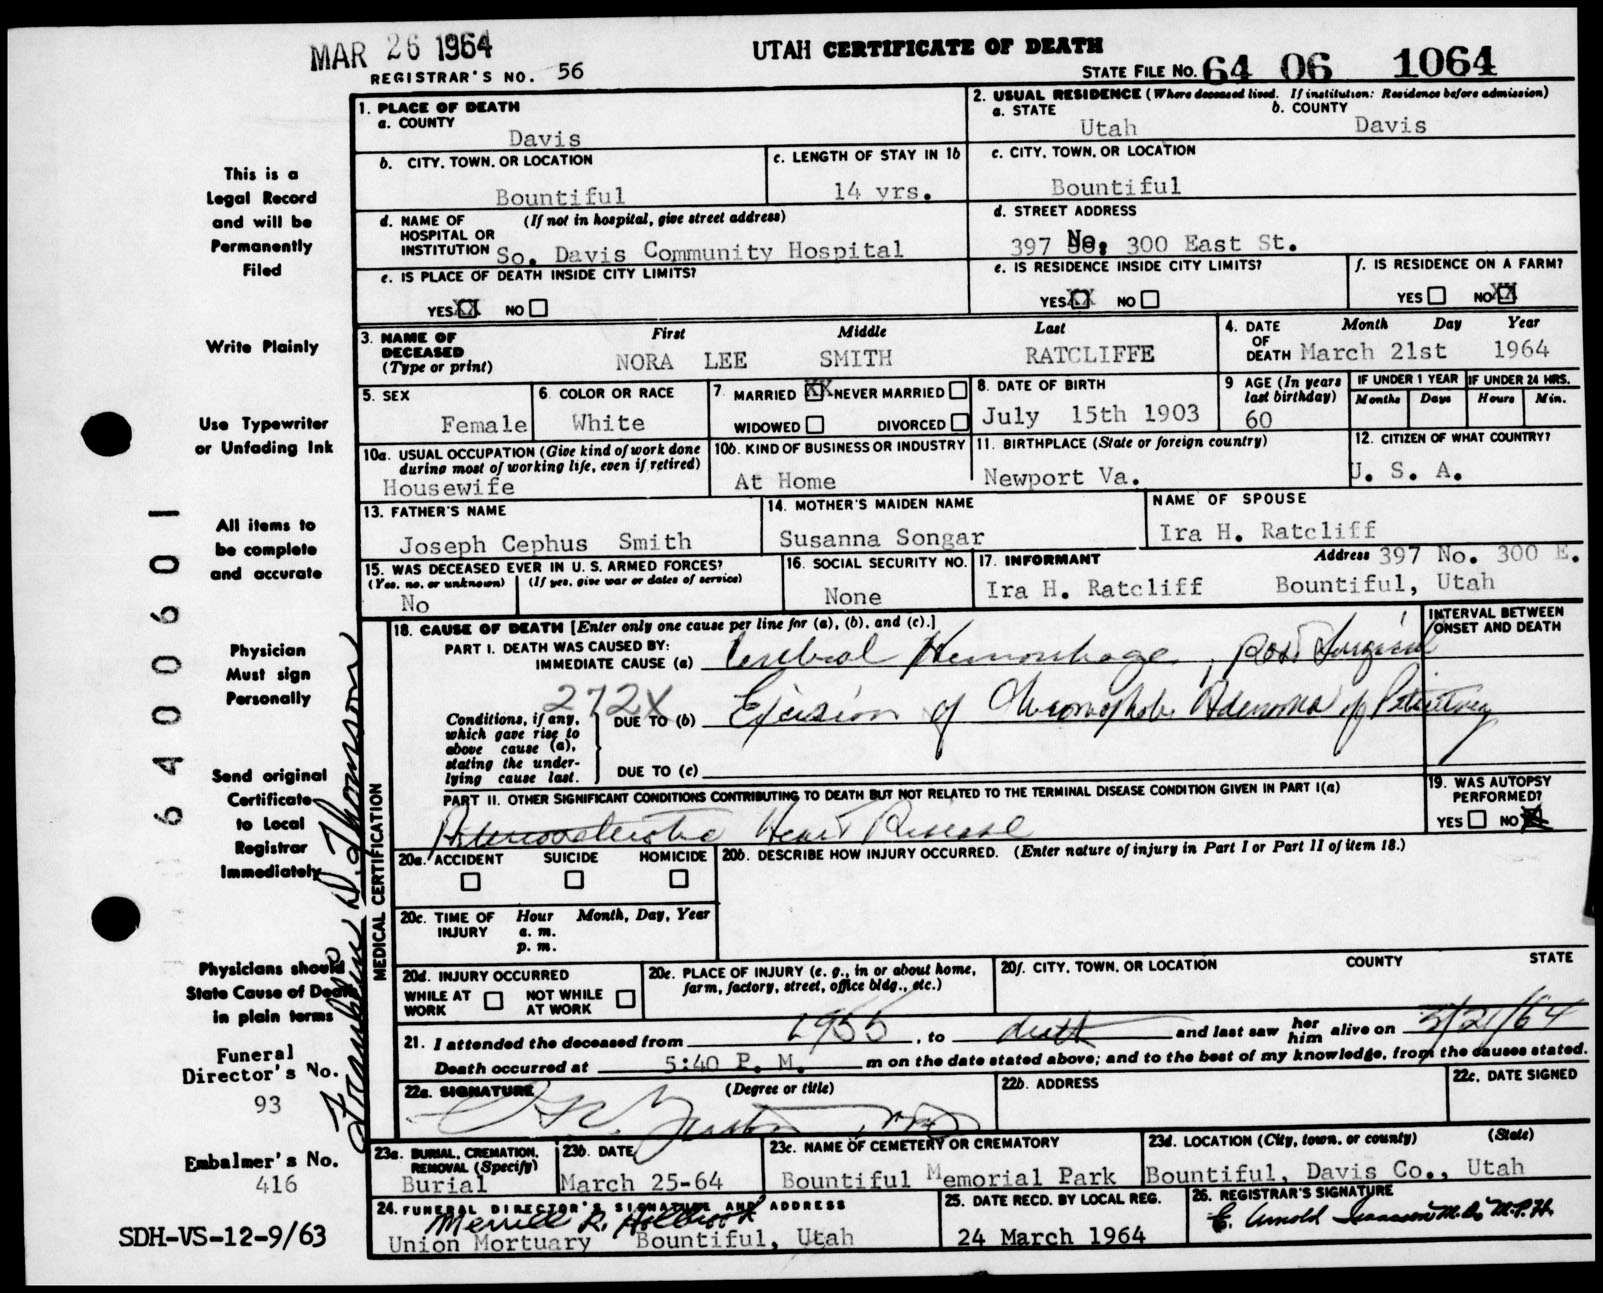 MAR 26 1964
UTAH CERTIFICATE OF DEATH
REGISTRAR'S NO. 56
STATE FILE NO. 64 06 1064
1. PLACE OF DEATH
a. COUNTY
Davis
2. USUAL RESIDENCE (Where deceased lived. If institution: Residence before admission)
a. STATE b. COUNTY
Utah Davis
b. CITY, TOWN, OR LOCATION
Bountiful
c. LENGTH OF STAY IN 1b
14 yrs.
c. CITY, TOWN, OR LOCATION
Bountiful
d. NAME OF HOSPITAL OR INSTITUTION (If not in hospital, give street address)
So. Davis Community Hospital
d. STREET ADDRESS
397 No. 300 East St.
e. IS PLACE OF DEATH INSIDE CITY LIMITS?
YES XX NO
e. IS RESIDENCE INSIDE CITY LIMITS?
YES XX NO
f. IS RESIDENCE ON A FARM?
YES NO XX
3. NAME OF DECEASED (Type or print)
First Middle Last
NORA LEE SMITH RATCLIFFE
4. DATE OF DEATH Month Day Year
March 21st 1964
5. SEX
Female
6. COLOR OR RACE
White
7. MARRIED XX NEVER MARRIED
WIDOWED DIVORCED
8. DATE OF BIRTH
July 15th 1903
9 AGE (In years last birthday)
60
IF UNDER 1 YEAR IF UNDER 24 HRS.
Months Days Hours Min.
10a. USUAL OCCUPATION (Give kind of work done during most of working life, even if retired)
Housewife
10b. KIND OF BUSINESS OR INDUSTRY
At Home
11. BIRTHPLACE (State or foreign country)
Newport Va.
12. CITIZEN OF WHAT COUNTRY?
U. S. A.
13. FATHER'S NAME
Joseph Cephus Smith
14. MOTHER'S MAIDEN NAME
Susanna Songar
NAME OF SPOUSE
Ira H. Ratcliff
15. WAS DECEASED EVER IN U. S. ARMED FORCES?
(Yes, no, or unknown) (If yes, give war or dates of service)
No
16. SOCIAL SECURITY NO.
None
17. INFORMANT Address 397 No. 300 E.
Ira H. Ratcliff Bountiful, Utah
18. CAUSE OF DEATH [Enter only one cause per line for (a), (b), and (c).]
INTERVAL BETWEEN ONSET AND DEATH
PART I. DEATH WAS CAUSED BY:
IMMEDIATE CAUSE (a) Cerebral Hemorrhage, post Surgical
272X
Conditions, if any, which gave rise to above cause (a), stating the underlying cause last.
DUE TO (b) Excision of Chromophobe Adenoma of Pituitary
DUE TO (c)
PART II. OTHER SIGNIFICANT CONDITIONS CONTRIBUTING TO DEATH BUT NOT RELATED TO THE TERMINAL DISEASE CONDITION GIVEN IN PART I(a)
Arteriosclerotic Heart Disease
19. WAS AUTOPSY PERFORMED?
YES NO X
20a. ACCIDENT SUICIDE HOMICIDE
20b. DESCRIBE HOW INJURY OCCURRED. (Enter nature of injury in Part I or Part II of item 18.)
20c. TIME OF INJURY Hour Month, Day, Year
a. m.
p. m.
20d. INJURY OCCURRED
WHILE AT WORK NOT WHILE AT WORK
20e. PLACE OF INJURY (e. g., in or about home, farm, factory, street, office bldg., etc.)
20f. CITY, TOWN, OR LOCATION COUNTY STATE
21. I attended the deceased from 1955, to death and last saw her him alive on 3/21/64
Death occurred at 5:40 P. M. m on the date stated above; and to the best of my knowledge, from the causes stated.
22a. SIGNATURE (Degree or title)
22b. ADDRESS
22c. DATE SIGNED
23a. BURIAL, CREMATION, REMOVAL (Specify)
Burial
23b. DATE
March 25-64
23c. NAME OF CEMETERY OR CREMATORY
Bountiful Memorial Park
23d. LOCATION (City, town, or county) (State)
Bountiful, Davis Co., Utah
24. FUNERAL DIRECTOR'S SIGNATURE AND ADDRESS
Merrill R. Holbrook
Union Mortuary Bountiful, Utah
25. DATE RECD. BY LOCAL REG.
24 March 1964
26. REGISTRAR'S SIGNATURE
E. Arnold Isaacson M.D., M.P.H.
MEDICAL CERTIFICATION
This is a
Legal Record
and will be
Permanently
Filed
Write Plainly
Use Typewriter
or Unfading Ink
All items to
be complete
and accurate
Physician
Must sign
Personally
Send original
Certificate
to Local
Registrar
immediately
Physicians should
State Cause of Death
in plain terms
Funeral
Director's No.
93
Embalmer's No.
416
SDH-VS-12-9/63
64006011
Franklin D. Thomson